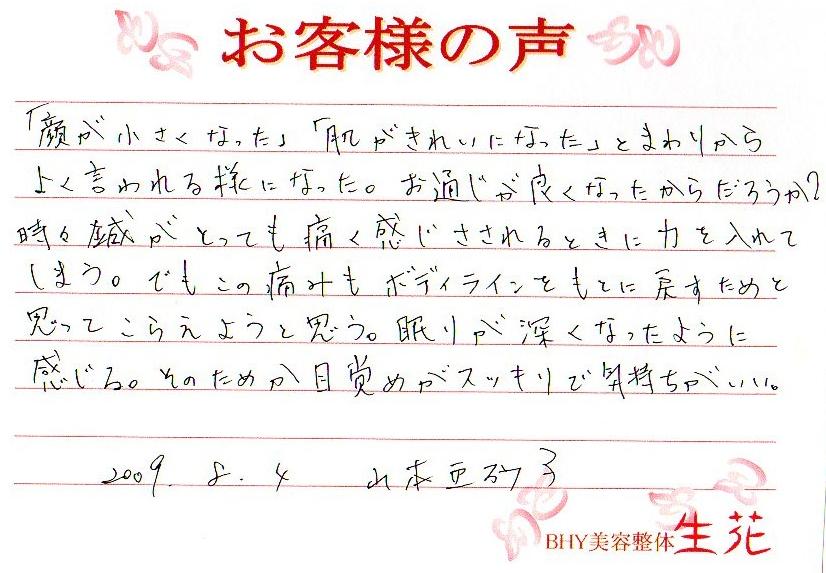 お客様の声
「顔が小さくなった」「肌がきれいになった」とまわりから
よく言われる様になった。お通じが良くなったからだろうか?
時々鍼がとっても痛く感じさされるときに力を入れて
しまう。でもこの痛みもボディラインをもとに戻すためと
思ってこらえようと思う。眠りが深くなったように
感じる。そのためか目覚めがスッキリで気持ちがいい。
2009. 8. 4 山本亜砂子
BHY美容整体 生花